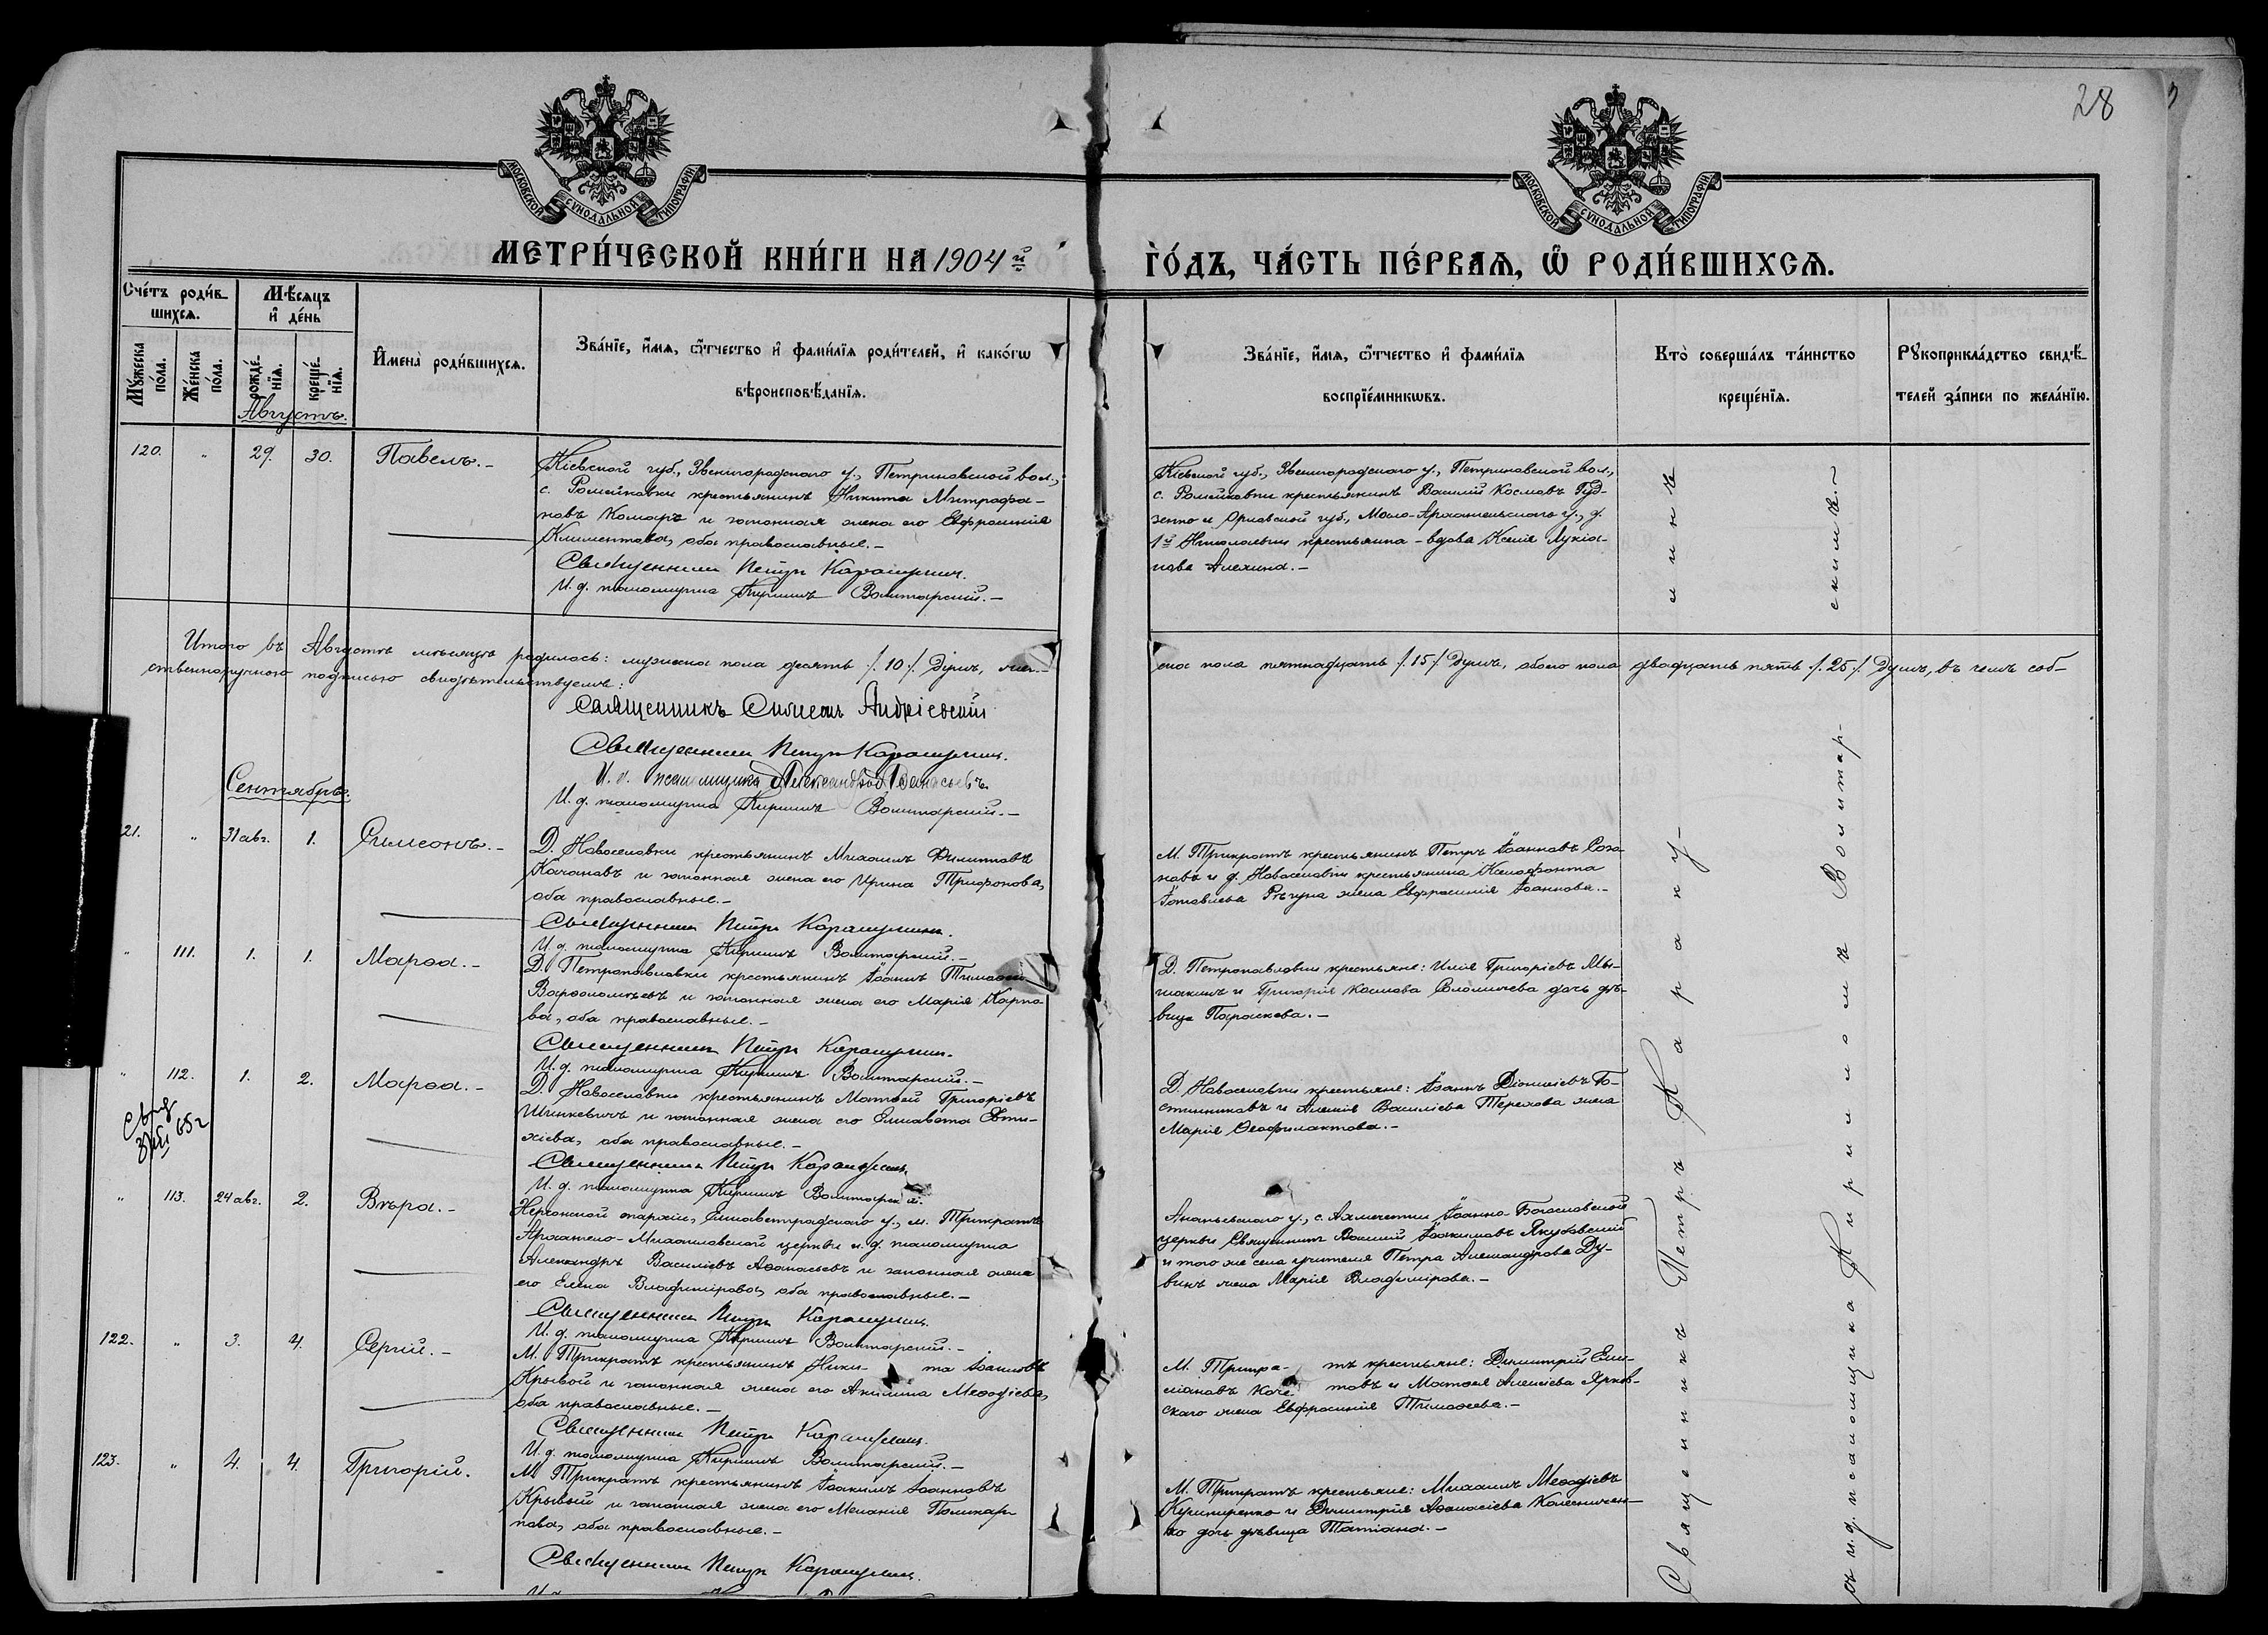 28
МОСКОВСКОЙ СѴНОДАЛЬНОЙ ТИПОГРАФІИ
МОСКОВСКОЙ СѴНОДАЛЬНОЙ ТИПОГРАФІИ
МЕТРИ́ЧЕСКОЙ КНИ́ГИ НА 1904й ГО́ДЪ, ЧА́СТЬ ПЕ́РВАѦ, Ѡ҆ РОДИ́ВШИХСѦ.
Сче́тъ роди́в-
шихсѧ.
Мѣ́сѧцъ
и҆ де́нь
Мꙋ́жеска
по́ла.
Же́нска
по́ла.
рожде́-
нїѧ.
креще́-
нїѧ.
И҆мена̀ роди́вшихсѧ.
Зва́нїе, и҆́мѧ, ѻ҆́тчество и҆ фами́лїѧ роди́телей, и҆ како́гѡ
вѣроисповѣ́данїѧ.
Зва́нїе, и҆́мѧ, ѻ҆́тчество и҆ фами́лїѧ
воспрїе́мникѡвъ.
Кто̀ соверша́лъ та́инство
креще́нїѧ.
Рꙋкоприкла́дство свидѣ́-
телей за́писи по жела́нїю.
Августъ.
120. " 29. 30. Павелъ.-
Кіевской губ., Звенигородскаго у., Петриковской вол.,
с. Ромейковки крестьянинъ Никита Митрофа-
новъ Комаръ и законная жена его Евфросинія
Климентова, оба православные.-
Священникъ Петръ Каракулинъ.
И. д. псаломщика Кириллъ Волитарскій.-
Кіевской губ., Звенигородскаго у., Петриковской вол.,
с. Ромейковки крестьянинъ Василій Космовъ Гуд-
зенко и Орловской губ., Мало-Архангельскаго у., д.
1й Николаевки крестьянка-вдова Ксенія Лукіа-
нова Алехина.-
Итого въ Августѣ мѣсяцѣ родилось: мужеска пола десять /.10/. душъ, жен-
ска пола пятнадцать /.15/. душъ, обоего пола двадцать пять /.25/. душъ, въ чемъ соб-
ственноручною подписью свидѣтельствуемъ:
Священникъ Симеонъ Андріевскій
Священникъ Петръ Каракулинъ.
И. д. псаломщика Александръ Аѳанасьевъ
И. д. псаломщика Кириллъ Волитарскій.-
Сентябрь.
21. " 31 авг. 1. Симеонъ.-
Д. Новоселовки крестьянинъ Михаилъ Филиповъ
Качановъ и законная жена его Ирина Трифонова,
оба православные.-
Священникъ Петръ Каракулинъ.
И. д. псаломщика Кириллъ Волитарскій.-
М. Трикратъ крестьянинъ Петръ Іоанновъ Соза-
новъ и д. Новоселовки крестьянина Ксенофонта
Рѣчуна жена Евфросинія Іоаннова.-
" 111. 1. 1. Марѳа.-
Д. Петропавловки крестьянинъ Іоаннъ
Варѳоломѣевъ и законная жена его Марія Карпо-
ва, оба православные.-
Священникъ Петръ Каракулинъ.
И. д. псаломщика Кириллъ Волитарскій.-
Д. Петропавловки крестьяне: Илія Григоріевъ Мы-
и Григорія Космова Соломичева дочь дѣ-
вица Параскева.-
" 112. 1. 2. Марѳа.-
Д. Новоселовки крестьянинъ Матѳей Григоріевъ
Шинкевичъ и законная жена его Елисавета Евти-
хіева, оба православные.-
Священникъ Петръ Каракулинъ.
И. д. псаломщика Кириллъ Волитарскій.
Д. Новоселовки крестьяне: Іоаннъ Діонисіевъ Го-
стинниковъ и Алексія Василіева Терехова жена
Марія Ѳеофилактова.-
65 г
" 113. 24 авг. 2. Вѣра.-
Херсонской епархіи, Елисаветградскаго у., м. Трикратъ
Архангело-Михаиловской церкви и. д. псаломщика
Александръ Василіевъ Аѳанасьевъ и законная жена
его Елена Владимірова, оба православные.-
Священникъ Петръ Каракулинъ.
И. д. псаломщика Кириллъ Волитарскій.-
Ананьевскаго у., с. Ахмечетки Іоанно-Богословской
церкви Священникъ Василій Іоакимовъ Якубовскій
и того же села учителя Петра Александрова Ду-
бинъ жена Марія Владимірова.-
122. " 3. 4. Сергій.-
М. Трикратъ крестьянинъ Ники- та Іоанновъ
Крывой и законная жена его Акилина Меѳодіева,
оба православные.-
Священникъ Петръ Каракулинъ.
И. д. псаломщика Кириллъ Волитарскій.-
М. Трикра- тъ крестьяне: Димитрій Еми-
ліановъ Коче товъ и Матѳея Алексіева Ярков-
скаго жена Евфросинія Тимоѳеева.-
123. " 4. 4. Григорій.
М. Трикратъ крестьянинъ Іоакимъ Іоанновъ
Крывый и законная жена его Меланія Поликар-
пова, оба православные.-
Священникъ Петръ Каракулинъ.
М. Трикратъ крестьяне: Михаилъ Меѳодіевъ
Кушниренко и Димитрія Аѳанасіева Колесничен-
ко дочь дѣвица Татіана.-
Священникъ Петръ Караку-
линъ
съ и. д. псаломщика Кирилломъ Волитар-
скимъ.-